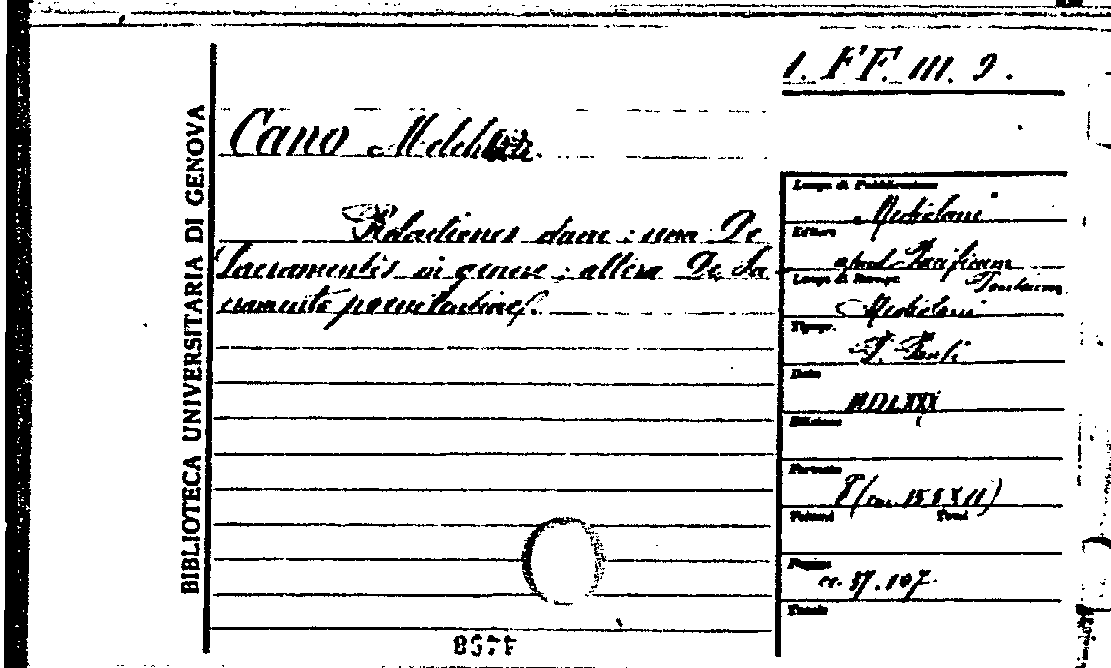 1. FF. III. 9.
BIBLIOTECA UNIVERSITARIA DI GENOVA
Cano Melchior.
Relectiones duae : una De
Sacramentis in genere ; altera De Sa
cramento poenitentiae.
Luogo di Pubblicazione
Mediolani
Editore
apud Pacificum
Pontium
Luogo di Stampa
Mediolani
Tipogr.
P. Ponti
Data
MDLXXX
Edizione
Formato
8 (cm. 15,5 X 11)
Volumi Tomi
Pagine
cc. 87. 107
Tavole